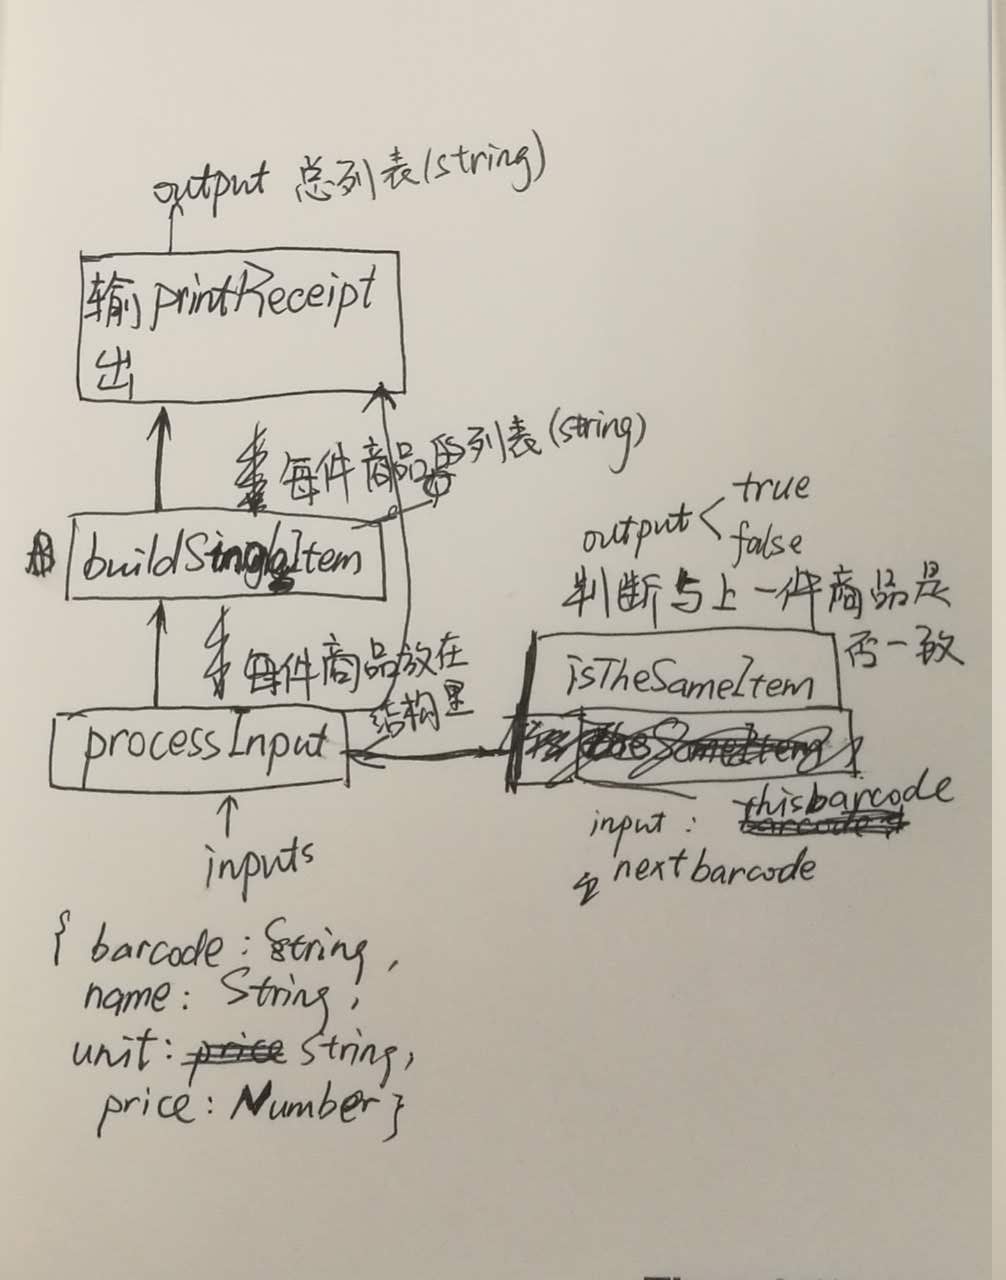 output 总列表(string)
输 printReceipt
出
每件商品的列表(string)
buildSingleItem
每件商品放在
结构里
processInput
inputs
{ barcode: String,
name: String,
unit: String,
price: Number}
output < true
false
判断与上一件商品是
否一致
isTheSameItem
input: thisbarcode
nextbarcode